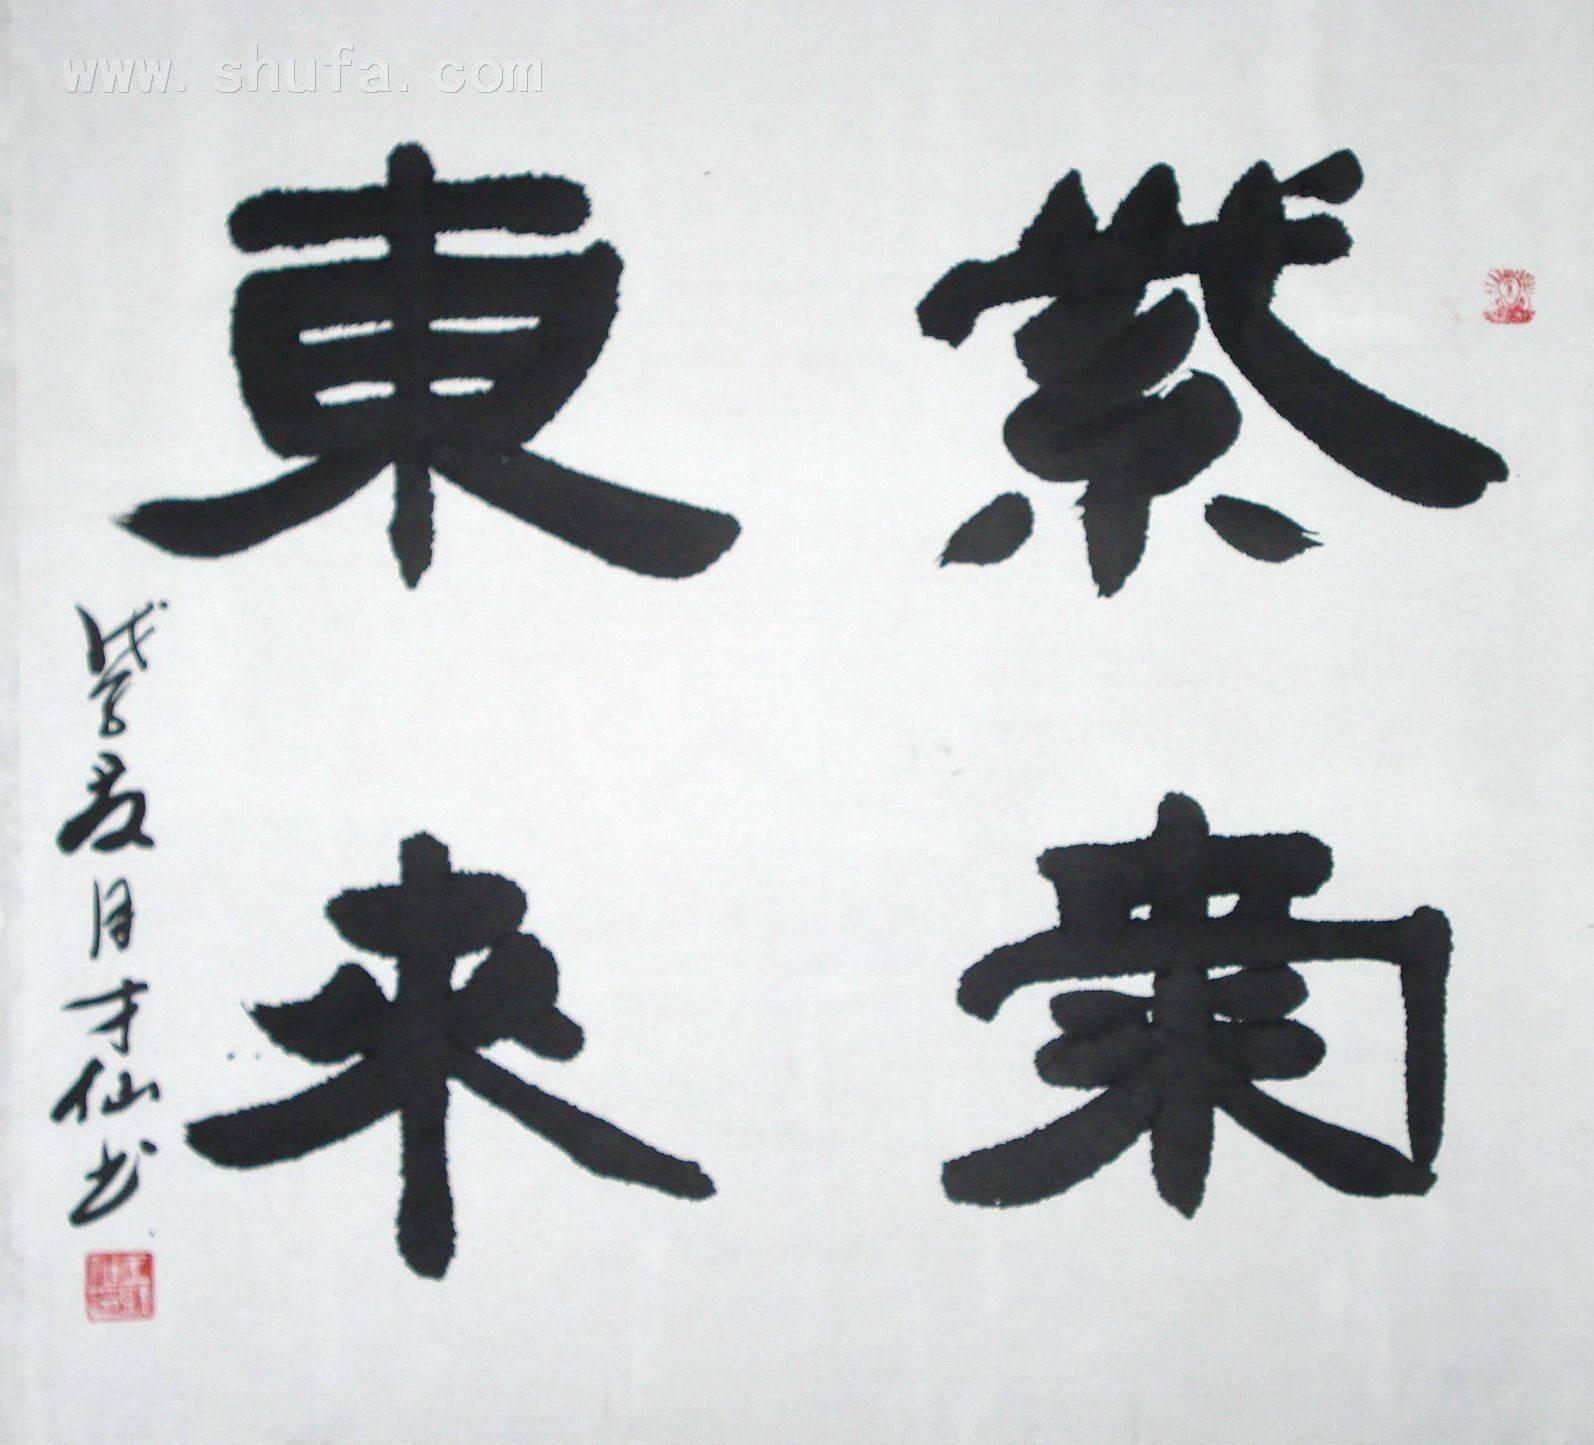 www.shufa.com
紫氣
東來
戊子夏月才仙书